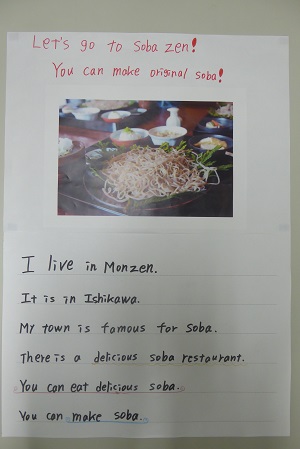 Let's go to Soba zen!
You can make original soba!
I live in Monzen.
It is in Ishikawa.
My town is famous for soba.
There is a delicious soba restaurant.
You can eat delicious soba.
You can make soba.